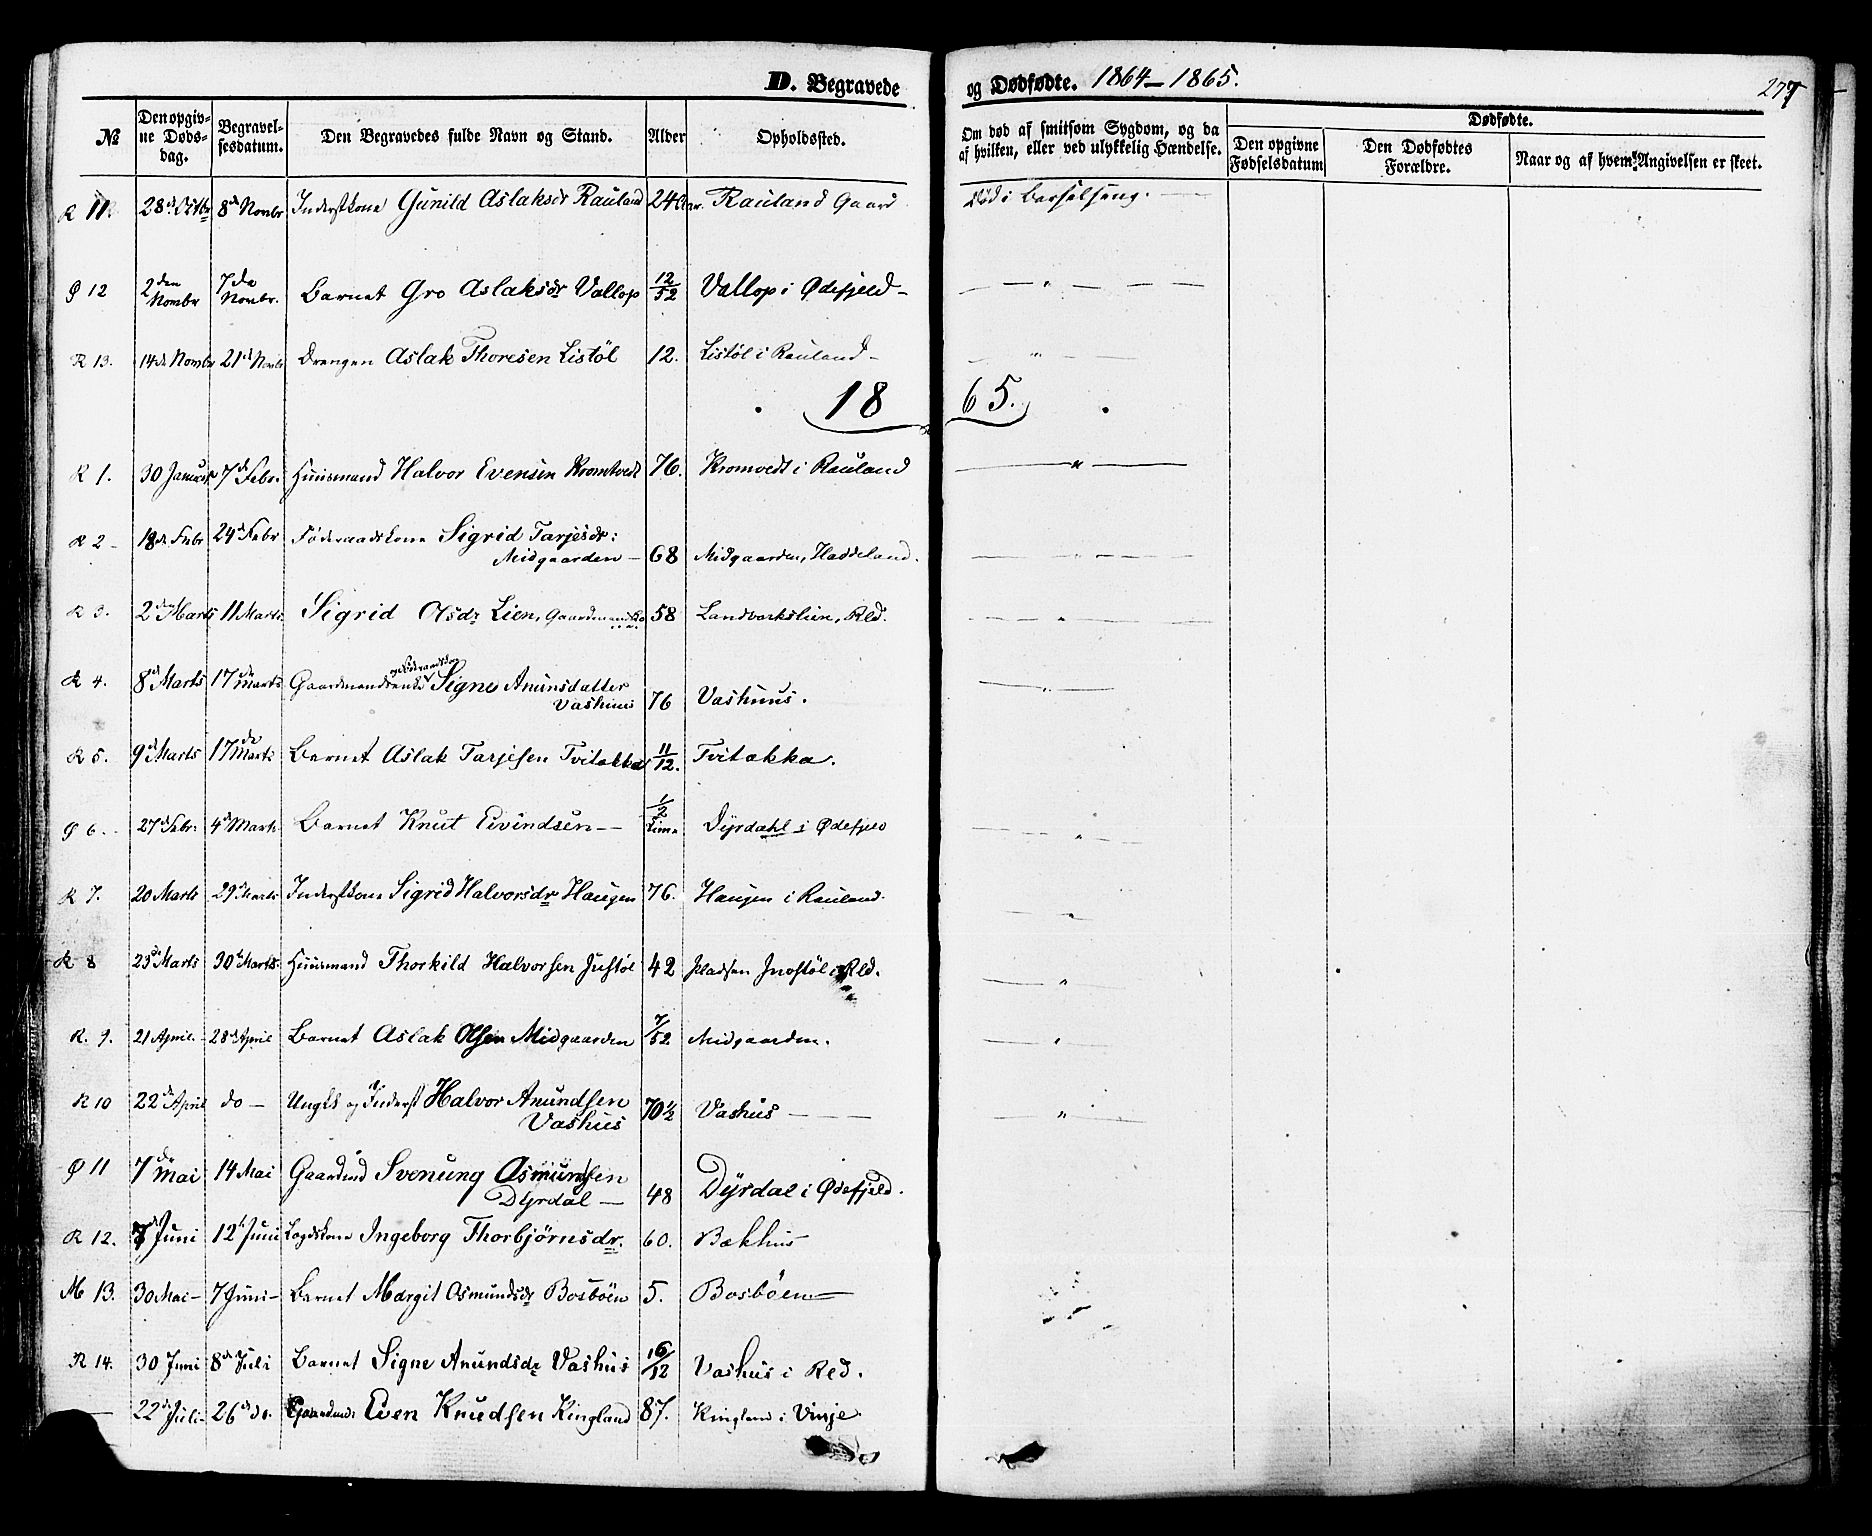 D. Begravede og Dødfødte. 1864-1865. 277
№ Den opgivne Dødsdag. Begravelsesdatum. Den Begravedes fulde Navn og Stand. Alder Opholdssted. Om død af smitsom Sygdom, og da af hvilken, eller ved ulykkelig Hændelse. Dødfødte.
Den opgivne Fødselsdatum Den Dødfødtes Forældre. Naar og af hvem Angivelsen er skeet.
R 11 28de Octbr 8de Novbr Inderstkone Gunild Aslaksdr Rauland 24 Aar. Rauland Gaard Død i Barselseng.
Ø 12 2den Novbr 7de Novbr. Barnet Gro Aslaksdr Vallop 12/52 Vallop i Ødefjeld - — " —
R 13. 14de Novbr 21de Novbr Drengen Aslak Thoresen Listøl 12. Listøl i Rauland - — " —
1865.
R 1. 30 Januar 7de Febr. Huusmand Halvor Evensen Kromtvedt 76. Kromvedt i Rauland — " —
R 2 - 18de Febr 24de Febr Föderaadskone Sigrid Tarjesdr:
Midgaarden - 68 Midgaarden, Haddeland. — " —
R 3. 2den Marts 11 Marts Sigrid Olsdr Lien, 58 Landverkslien, Rld. — " —
R 4. 8de Marts 17de Marts Gaardmandsenke Signe Anunsdatter
Vashuus 76 Vashuus. — " —
R 5. 9de Marts 17de Marts Barnet Aslak Tarjesen Tvitækka 11/12. Tvitækka.
Ø 6. 27de Febr. 4de Marts Barnet Knut Eivindsen — 1/2 Time Dyrdahl i Ødefjeld — " —
R 7. 20 Marts 29de Marts Inderstkone Sigrid Halvorsdr Haugen 76. Haugen i Rauland. — " —
R 8 23de Marts 30te Marts. Huusmand Thorkild Halvorsen Justøl 42 Pladsen Jnostöl i Rld. — " —
R. 9. 21 April. 28de April Barnet Aslak Olsen Midgaarden 7/52 Midgaarden. — " —
R 10 22de April do — Ungk. og Inderst Halvor Anundsen
Vashus 70 1/2 Vashus — — " —
Ø 11 7de Mai 14 Mai Gaardmd Svenung Asmundsen
Dyrdal — 48 Dyrdal i Ødefjeld.
R 12. 7de Juni 12te Juni Lægdskone Ingeborg Thorbjørnsdr. 60. Bækhus
M 13. 30 Mai - 7 Juni - Barnet Margit Osmundsdr Bosböen 5. Bosböen —
R 14. 30 Juni 8de Juli Barnet Signe Anundsdr Vashus 16/12 Vashus i Rld.
22de Juli - 26de do. Gaardmd: Even Knudsen Kingland 87. Kingland i Vinje.